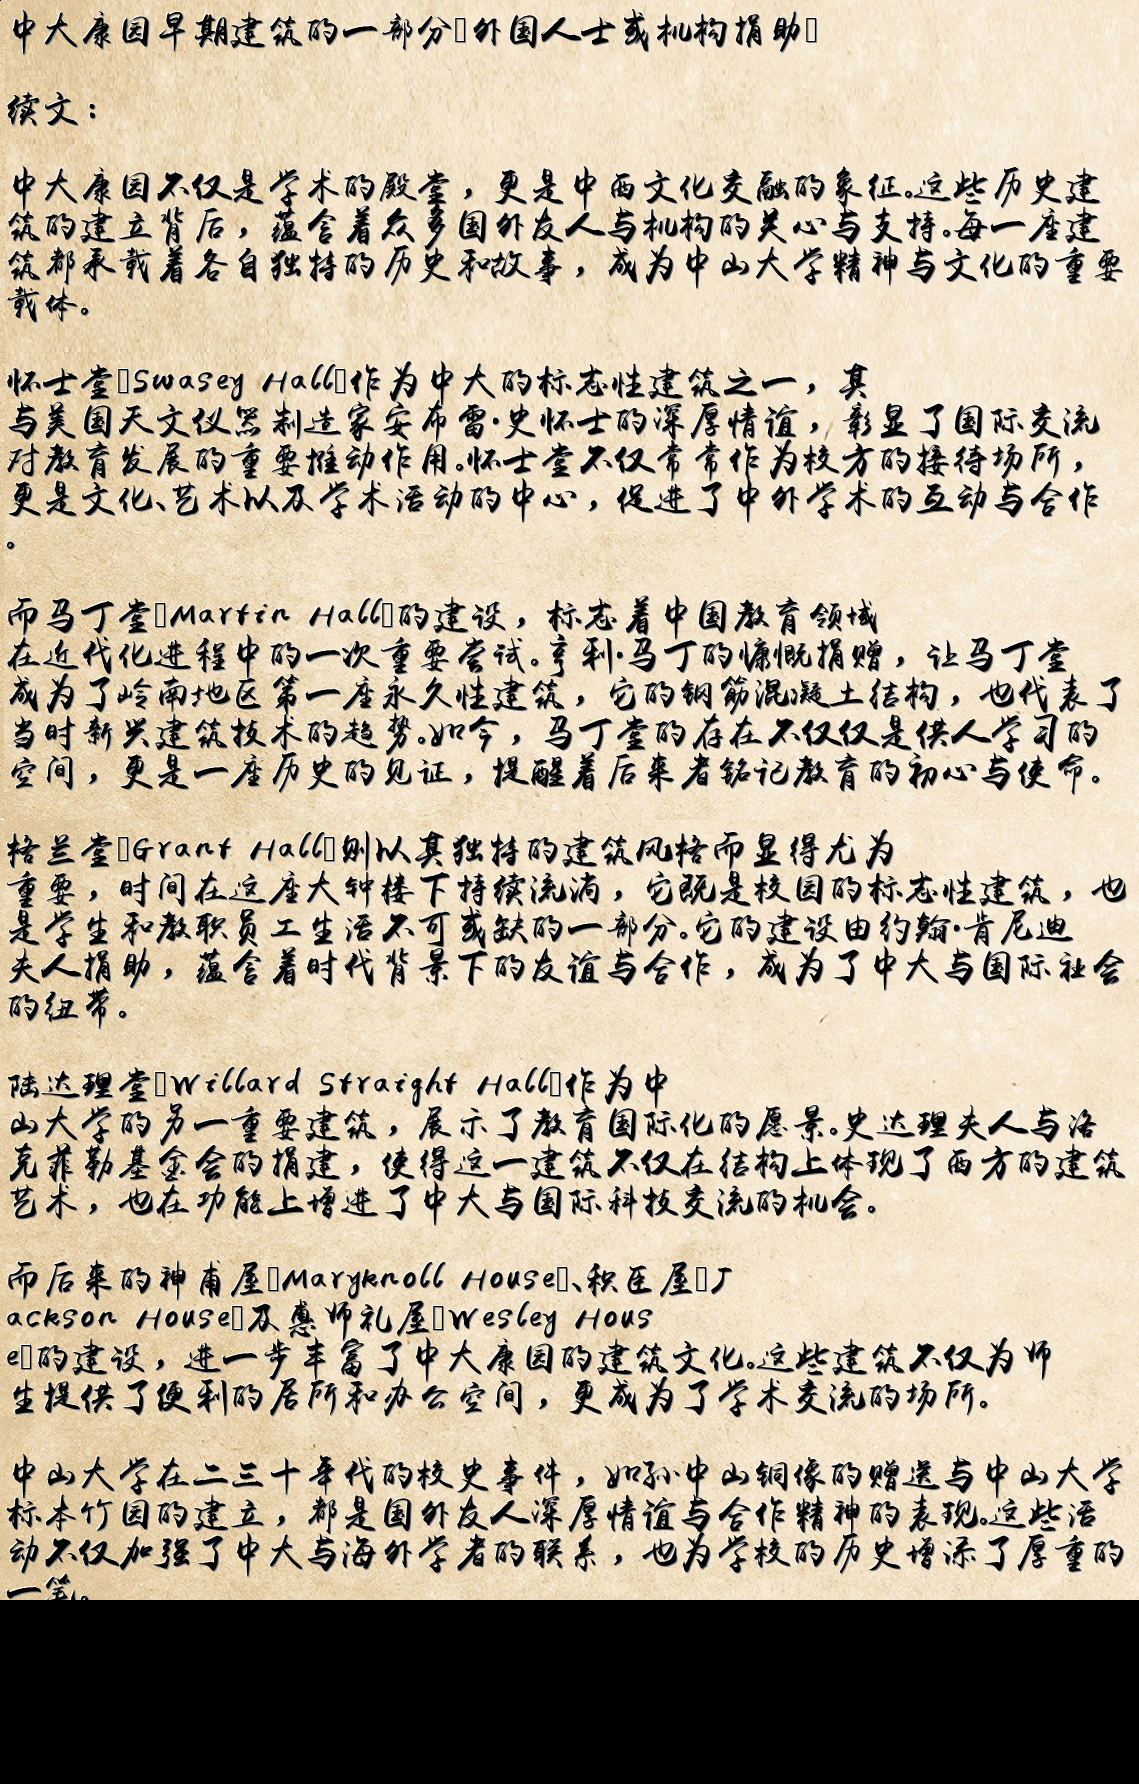 中大康园早期建筑的一部分▯外国人士或机构捐助▯
续文：
中大康园不仅是学术的殿堂，更是中西文化交融的象征。这些历史建
筑的建立背后，蕴含着众多国外友人与机构的关心与支持。每一座建
筑都承载着各自独特的历史和故事，成为中山大学精神与文化的重要
载体。
怀士堂▯Swasey Hall▯作为中大的标志性建筑之一，其
与美国天文仪器制造家安布雷·史怀士的深厚情谊，彰显了国际交流
对教育发展的重要推动作用。怀士堂不仅常常作为校方的接待场所，
更是文化、艺术以及学术活动的中心，促进了中外学术的互动与合作
。
而马丁堂▯Martin Hall▯的建设，标志着中国教育领域
在近代化进程中的一次重要尝试。亨利·马丁的慷慨捐赠，让马丁堂
成为了岭南地区第一座永久性建筑，它的钢筋混凝土结构，也代表了
当时新兴建筑技术的趋势。如今，马丁堂的存在不仅仅是供人学习的
空间，更是一座历史的见证，提醒着后来者铭记教育的初心与使命。
格兰堂▯Grant Hall▯则以其独特的建筑风格而显得尤为
重要，时间在这座大钟楼下持续流淌，它既是校园的标志性建筑，也
是学生和教职员工生活不可或缺的一部分。它的建设由约翰·肯尼迪
夫人捐助，蕴含着时代背景下的友谊与合作，成为了中大与国际社会
的纽带。
陆达理堂▯Willard Straight Hall▯作为中
山大学的另一重要建筑，展示了教育国际化的愿景。史达理夫人与洛
克菲勒基金会的捐建，使得这一建筑不仅在结构上体现了西方的建筑
艺术，也在功能上增进了中大与国际科技交流的机会。
而后来的神甫屋▯Maryknoll House▯、积臣屋▯J
ackson House▯及惠师礼屋▯Wesley Hous
e▯的建设，进一步丰富了中大康园的建筑文化。这些建筑不仅为师
生提供了便利的居所和办公空间，更成为了学术交流的场所。
中山大学在二三十年代的校史事件，如孙中山铜像的赠送与中山大学
标本竹园的建立，都是国外友人深厚情谊与合作精神的表现。这些活
动不仅加强了中大与海外学者的联系，也为学校的历史增添了厚重的
一笔。